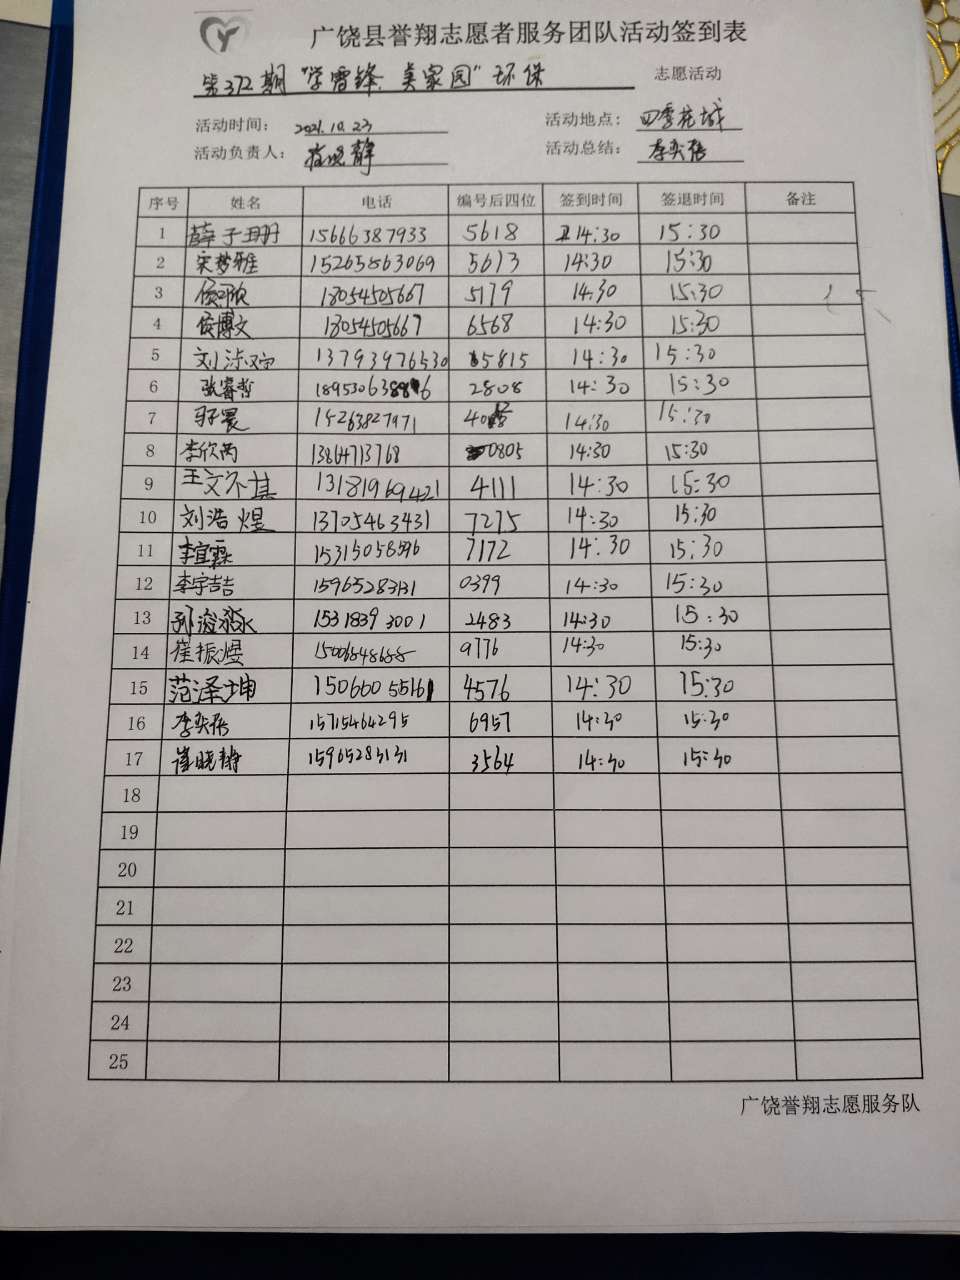 广饶县誉翔志愿者服务团队活动签到表
第372期"学雷锋、美家园"环保 志愿活动
活动时间: 2021.10.23 活动地点: 四季花城
活动负责人: 崔晓静 活动总结: 李奕蓓
序号 姓名 电话 编号后四位 签到时间 签退时间 备注
1 薛子珊 15666387933 5618 14:30 15:30
2 宋梦雅 15265863069 5613 14:30 15:30
3 18054505667 5179 14:30 15:30
4 侯博文 18054505667 6568 14:30 15:30
5 13793976530 5815 14:30 15:30
6 张睿哲 2808 14:30 15:30
7 15263827971 14:30 15:30
8 李欣芮 13864713768 0805 14:30 15:30
9 王文 13181969421 4111 14:30 15:30
10 刘浩煜 13705463431 7275 14:30 15:30
11 李宜霖 15315058596 7172 14:30 15:30
12 李宇喆 15965283131 0399 14:30 15:30
13 孙 15318393001 2483 14:30 15:30
14 崔振煜 15006848688 9776 14:30 15:30
15 范泽坤 15066055161 4576 14:30 15:30
16 李奕蓓 15715464295 6957 14:30 15:30
17 崔晓静 15965283131 3564 14:30 15:30
18
19
20
21
22
23
24
25
广饶誉翔志愿服务队